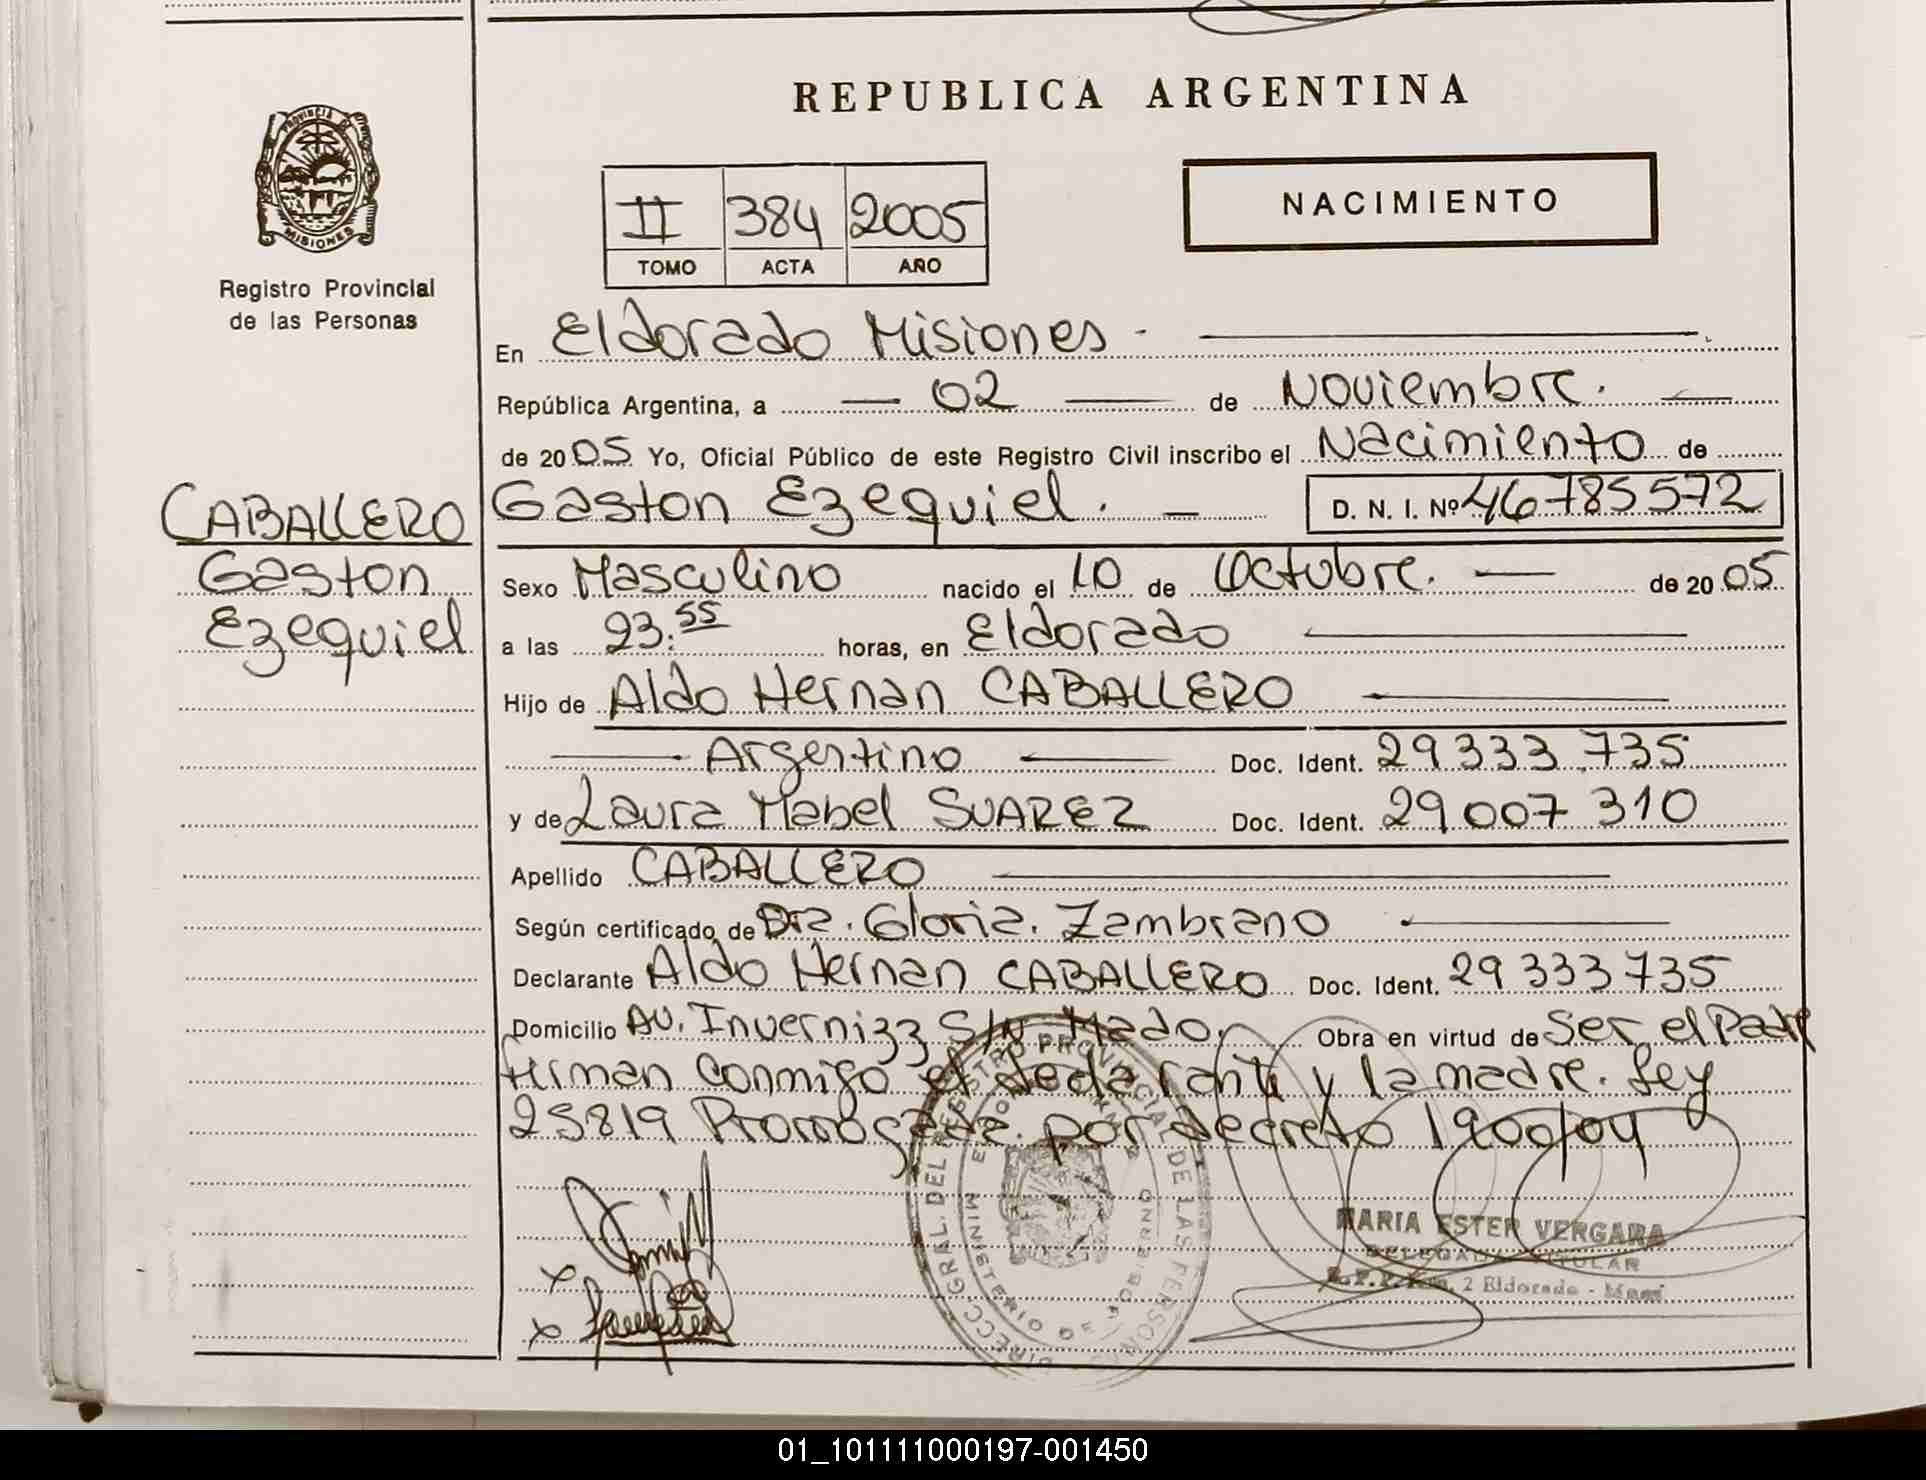 REPUBLICA ARGENTINA
PROVINCIA DE
MISIONES
Registro Provincial
de las Personas
II 384 2005
TOMO ACTA AÑO
NACIMIENTO
En Eldorado Misiones -
República Argentina, a — 02 — de Noviembre. —
de 2005 Yo, Oficial Público de este Registro Civil inscribo el Nacimiento de
CABALLERO
Gaston
Ezequiel
Gaston Ezequiel. — D. N. I. Nº 46785572
Sexo Masculino nacido el 10 de Octubre. — de 2005
a las 23:55 horas, en Eldorado
Hijo de Aldo Hernan CABALLERO
— Argentino — Doc. Ident. 29333.735
y de Laura Mabel SUAREZ Doc. Ident. 29007310
Apellido CABALLERO
Según certificado de Dra. Gloria. Zambrano
Declarante Aldo Hernan CABALLERO Doc. Ident. 29333735
Domicilio Av. Invernizz S/N Mado. Obra en virtud de Ser el Padre
firman conmigo el declarante y la madre. Ley
25819 Promogada. por decreto 1900/04
DIRECC. GRAL. DEL REGISTRO PROVINCIAL DE LAS PERSONAS
MINISTERIO DE GOBIERNO
MARIA ESTER VERGARA
DELEGADA TITULAR
2 Eldorado - Mnes
01_101111000197-001450